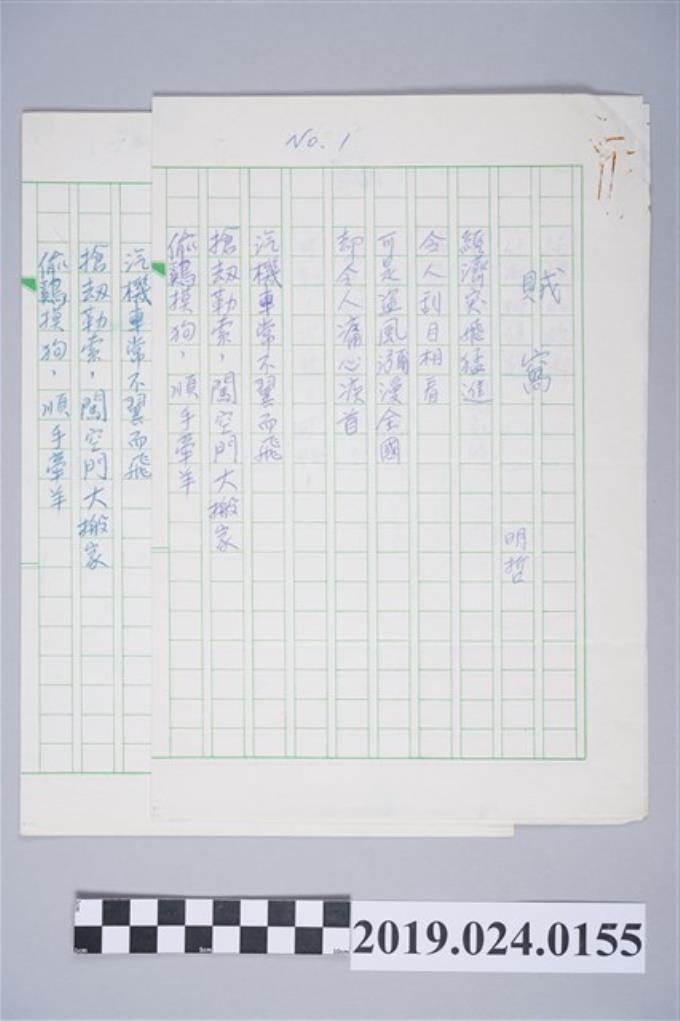 No. 1
賊窩
明哲
經濟突飛猛進
令人刮目相看
可是盜風瀰漫全國
却令人痛心疾首
汽機車常不翼而飛
搶刼勒索，闖空門大搬家
偷鷄摸狗，順手牽羊
汽機車常不翼而飛
搶刼勒索，闖空門大搬家
偷鷄摸狗，順手牽羊
0cm 5cm 10cm
2019.024.0155